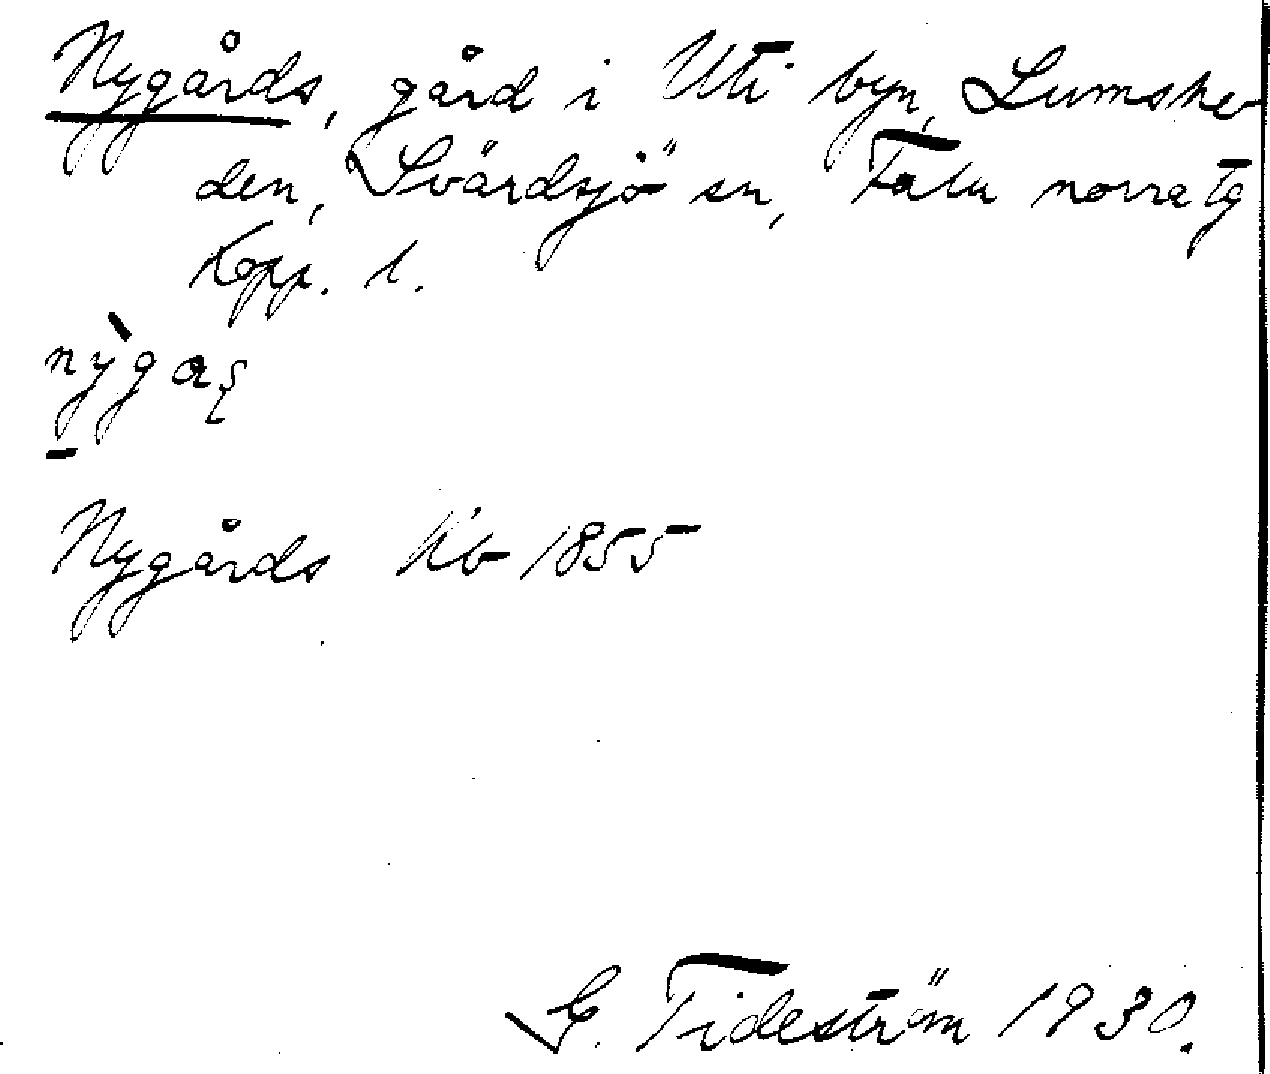 Nygårds, gård i Uti byn, Lumshe-
den, Svärdsjö sn, Falu norra tg
Kopp. l.
Nygårds Kb 1855
G. Tideström 1930.